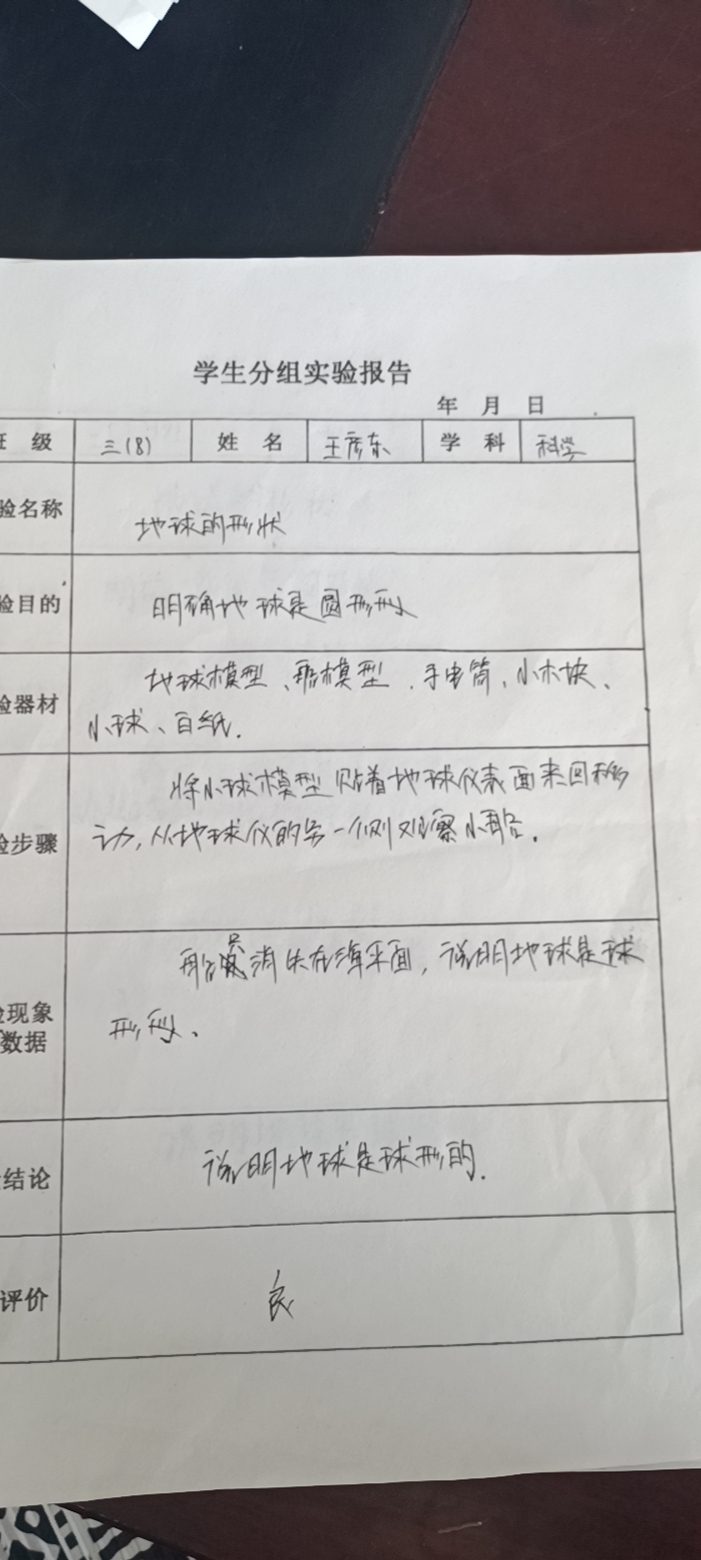 学生分组实验报告
年 月 日
班 级 三(8) 姓 名 王彦东 学 科 科学
验名称 地球的形状
验目的 明确地球是圆形
验器材 地球模型、船模型、手电筒、小木块、
小球、白纸.
将小球模型贴着地球仪表面来回移
验步骤 动,从地球仪的另一侧观察小船.
船 消失在海平面,说明地球是球
验现象
数据 形
结论 说明地球是球形的.
评价 良